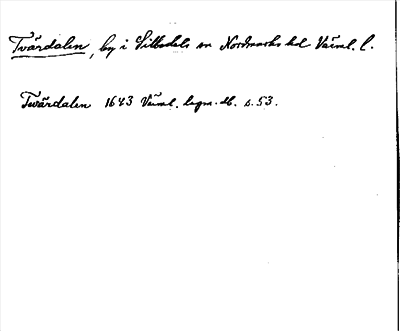 Tvärdalen, by i Sillbodals sn Nordmarks hd Värml. l.
Tvärdalen 1643 Värml. lagm. db. s. 53.